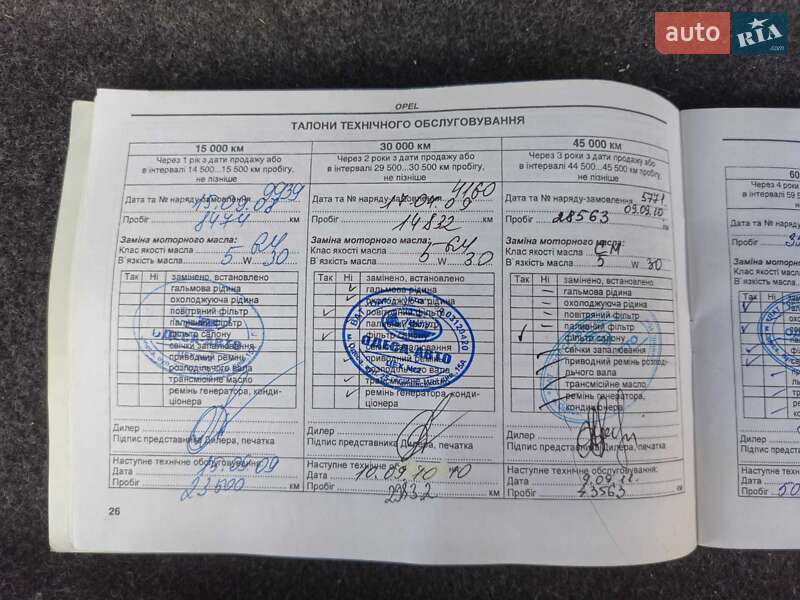 auto RIA.com
OPEL
ТАЛОНИ ТЕХНІЧНОГО ОБСЛУГОВУВАННЯ
15 000 км
Через 1 рік з дати продажу або
в інтервалі 14 500...15 500 км пробігу,
не пізніше
9939
Дата та № наряду-замовлення
Пробіг 8474 км
Заміна моторного масла:
Клас якості масла
В`язкість масла 5 W 30
Так Ні замінено, встановлено
гальмова рідина
охолоджуюча рідина
повітряний фільтр
паливний фільтр
фільтр салону
свічки запалювання
приводний ремінь
розподільного вала
трансмісійне масло
ремінь генератора, конди-
ціонера
Дилер
Підпис представника Дилера, печатка
Наступне технічне обслуговування:
Дата 15.09.09
Пробіг 23500 км
30 000 км
Через 2 роки з дати продажу або
в інтервалі 29 500...30 500 км пробігу,
не пізніше
4160
Дата та № наряду-замовлення
Пробіг 14832 км
Заміна моторного масла:
Клас якості масла
В`язкість масла 5 W 30
Так Ні замінено, встановлено
гальмова рідина
охолоджуюча рідина
повітряний фільтр
паливний фільтр
фільтр салону
запалювання
приводний ремінь
розподільного вала
трансмісійне масло
ремінь генератора, конди-
ціонера
ОДЕСА АВТО
Дилер
Підпис представника Дилера, печатка
Наступне технічне
Дата 10.09.10
Пробіг км
45 000 км
Через 3 роки з дати продажу або
в інтервалі 44 500...45 500 км пробігу,
не пізніше
5771
Дата та № наряду-замовлення 09.09.10
Пробіг 28563 км
Заміна моторного масла:
Клас якості масла
В`язкість масла 5 W 30
Так Ні замінено, встановлено
гальмова рідина
охолоджуюча рідина
повітряний фільтр
паливний фільтр
фільтр салону
свічки запалювання
приводний ремінь розпо-
дільного вала
трансмісійне масло
ремінь генератора,
кондиціонера
Дилер
Підпис представника Дилера, печатка
Наступне технічне обслуговування:
Дата
Пробіг 43563 км
26
60
Через 4 роки
в інтервалі 59 5
Дата та №
Пробіг
Заміна моторн
Клас якості
В`язкість масла
Так Ні
Дилер
Підпис представ
Наступне техніч
Дата
Пробіг 50